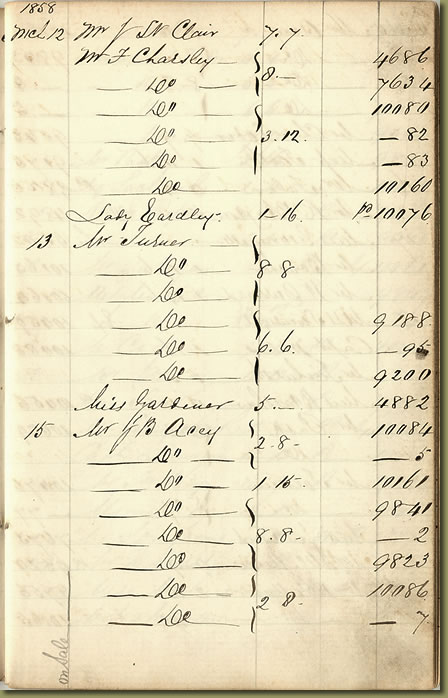 1858
Mch 12 Mr J St Clair 7. 7.
Mr F Charsley 4686
8. —
— Do — 7634
— Do — 10080
— Do — 3. 12. — 82
— Do — — 83
— Do 10160
Lady Eardley. 1 - 16. pd 10076
13 Mr Turner
— Do — 8 8
— Do —
— Do — 9188.
— Do — 6. 6. — 95
— Do — 9200
Miss Gardiner 5. — 4882
15 Mr J B Acey 10084
2 . 8 -
— Do — — 5
— Do — 1 15. 10161
— Do — 9841
— Do — 8. 8. — 2
— Do — 9823
— Do — 10086
2 8.
— Do — — 7
on Sale